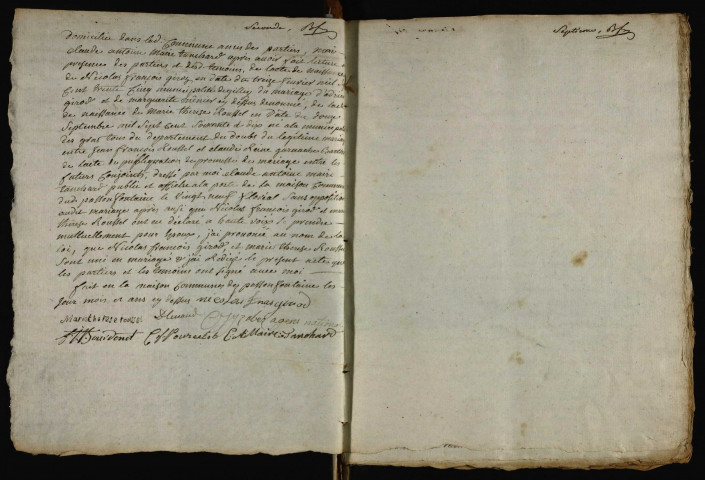 Seconde,
domicilies dans lad. Commune amies des parties, moi
claude antoine Maire tanchard après avoir fait lecture en
presence des parties et desd. temoins, de lacte de naissance
de Nicolas François girod en date du treize fevrier mil sept
Cent trente Cinq municipalité du mariage
girod et de marguerite en dessus denommé, de lacte
de naissance de marie therese Roussel en date du douze
Septembre mil Sept Cent Soixante et dix né a la municipalité
des gras tous du departement du doubs du legitime mariage
entre Jean François Roussel et claudes Reine
de lacte de publiquation de promesses de mariage entre les
futurs Conjoints, dressé par moi claude antoine maire
tanchard publié et affiché a la porte de la maison Commune
dud. passonfontaine le vingt neuf floréal Sans opposition
audit mariage après aussi que Nicolas François girod et marie
thérèse Roussel ont eu déclaré a haute voix se prendre
mutuellement pour Epoux, j'ai prononcé au nom de la
loi, que Nicolas francois girod, et marie therese Roussel
Sont uni en mariage et j'ai Rédigé le present acte que
les parties et les temoins ont signé avec moi
fait en la maison Commune de passonfontaine les
Jour mois, et ans cy dessus nicolas francois girod
Marie therese roussel
C A Maire Tanchard
Septieme,